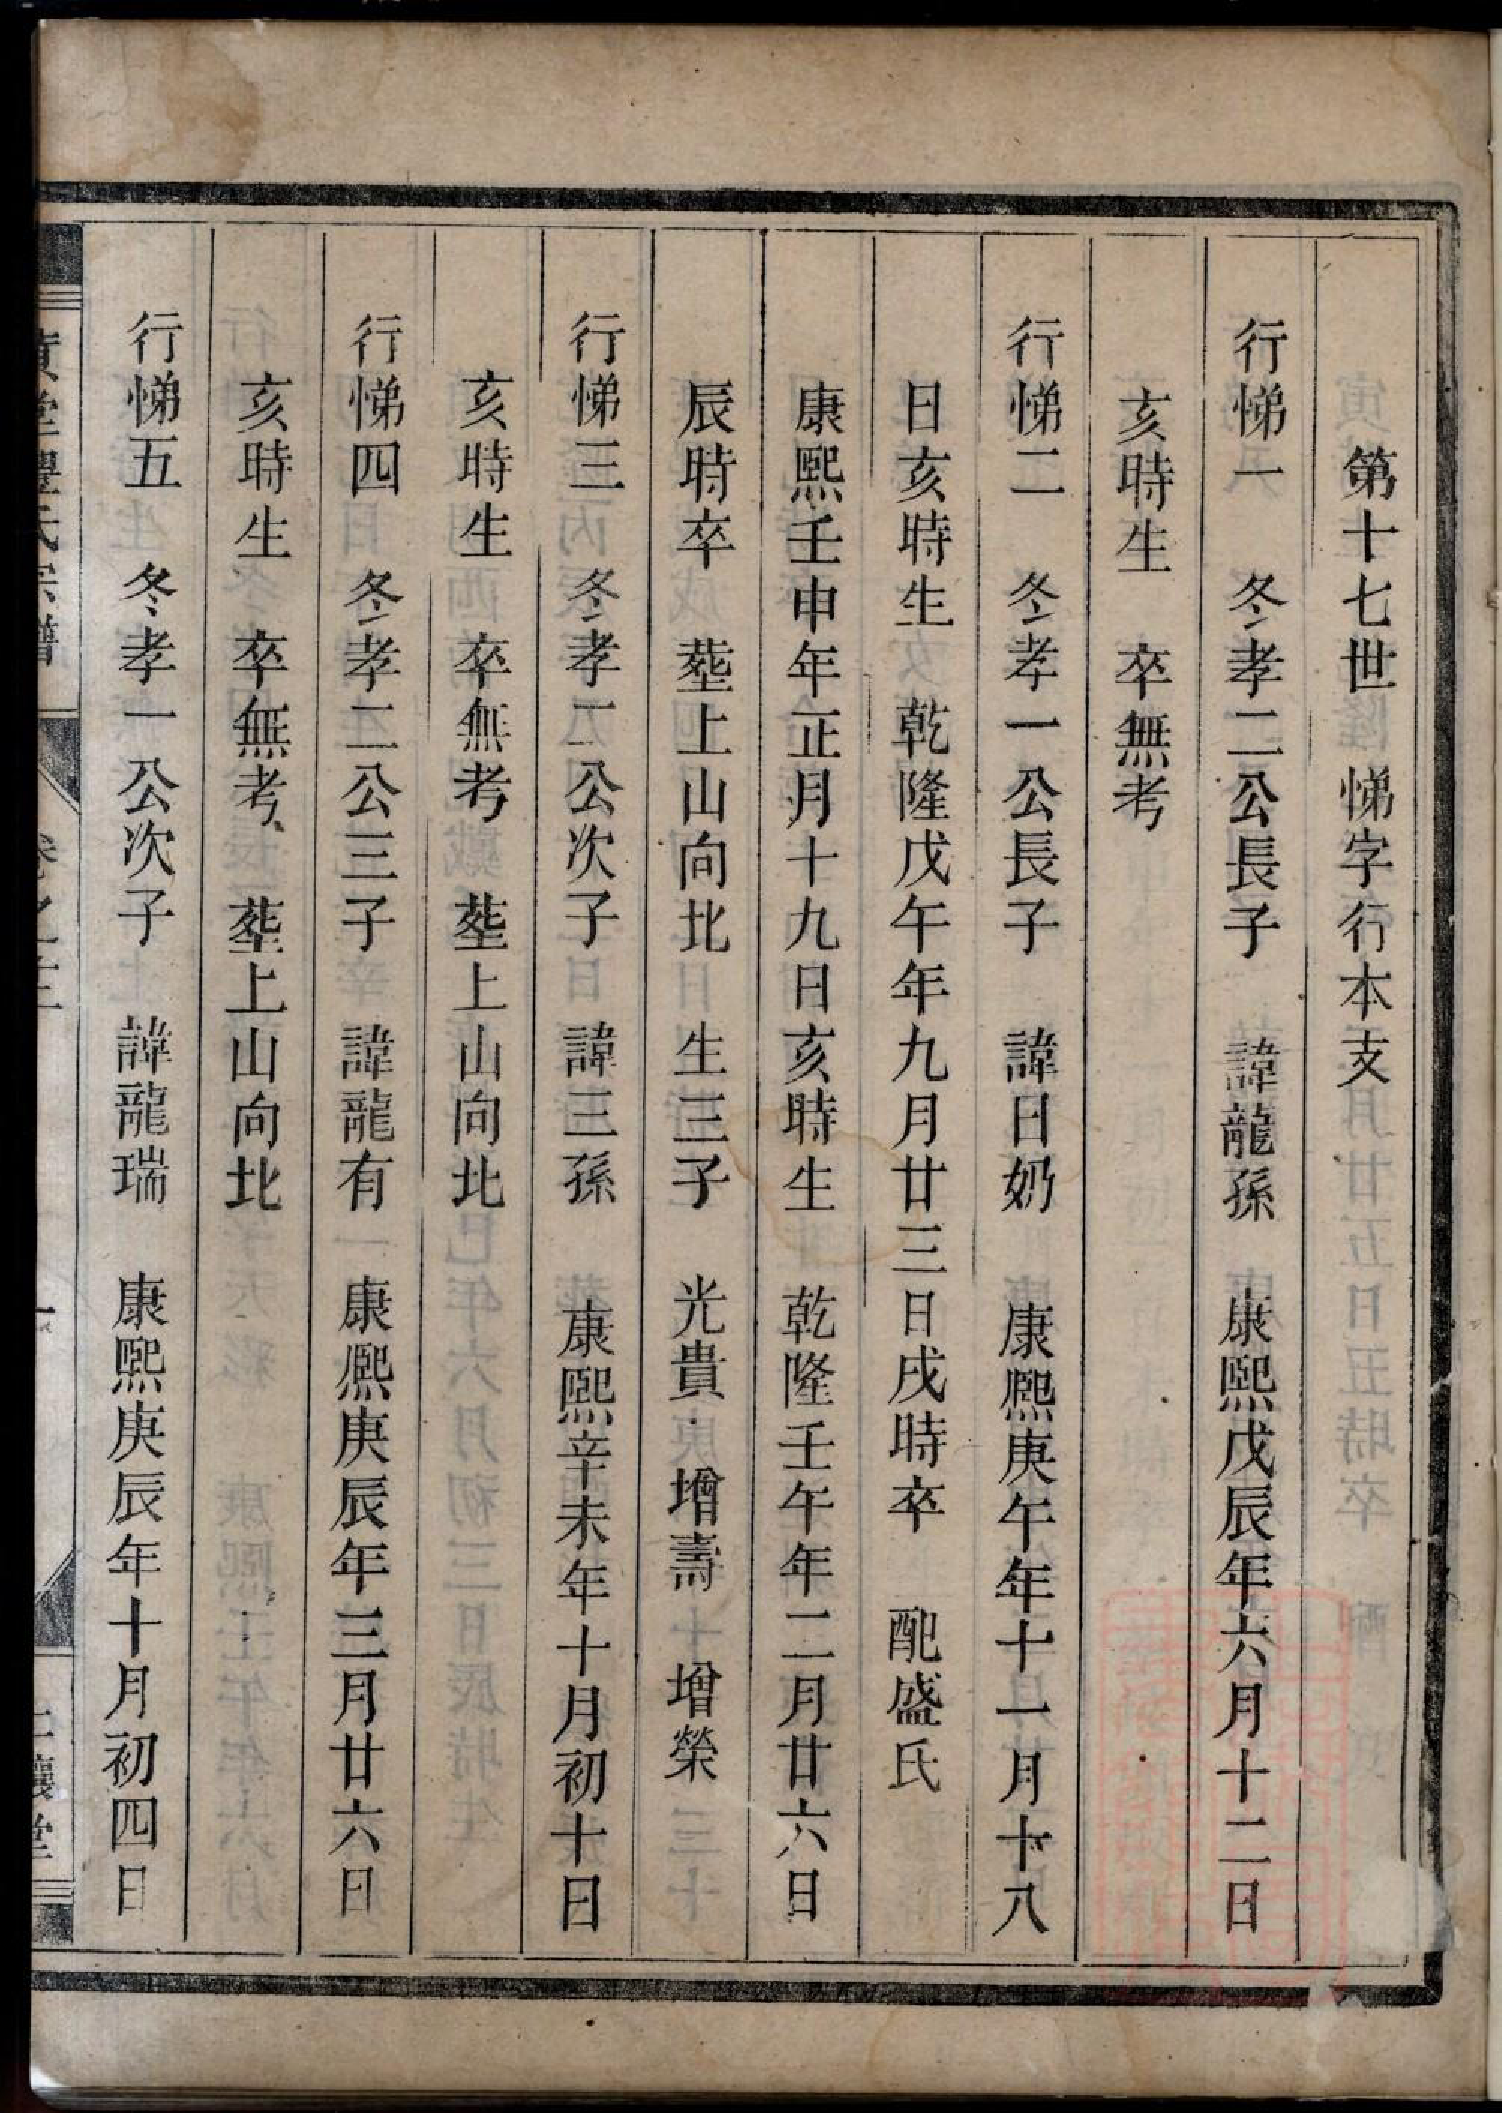 第十七世 悌字行本支
行悌一 冬孝二公長子 諱龍孫 康熙戊辰年六月十二日
亥時生 卒無考
行悌二 冬孝一公長子 諱日奶 康熙庚午年十一月十八
日亥時生 乾隆戊午年九月廿三日戌時卒 配盛氏
康熙壬申年正月十九日亥時生 乾隆壬午年二月廿六日
辰時卒 塟上山向北 生三子 光貴 增壽 增榮
行悌三 冬孝二公次子 諱三孫 康熙辛未年十月初十日
亥時生 卒無考 塟上山向北
行悌四 冬孝二公三子 諱龍有 康熙庚辰年三月廿六日
亥時生 卒無考 塟上山向北
行悌五 冬孝一公次子 諱龍瑞 康熙庚辰年十月初四日
氏宗譜 卷之三 堂